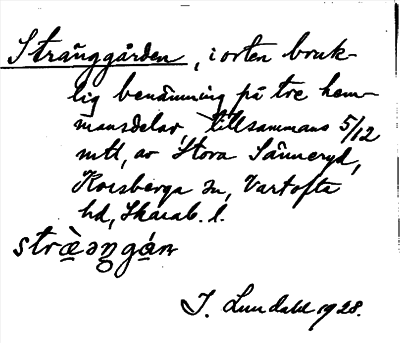 Stränggården, i orten bruk-
lig benämning på tre hem-
mansdelar, tillsammans 5/12
mtl, av Stora Sänneryd,
Korsberga sn, Vartofta
hd, Skarab. l.
J. Lundahl 1928.